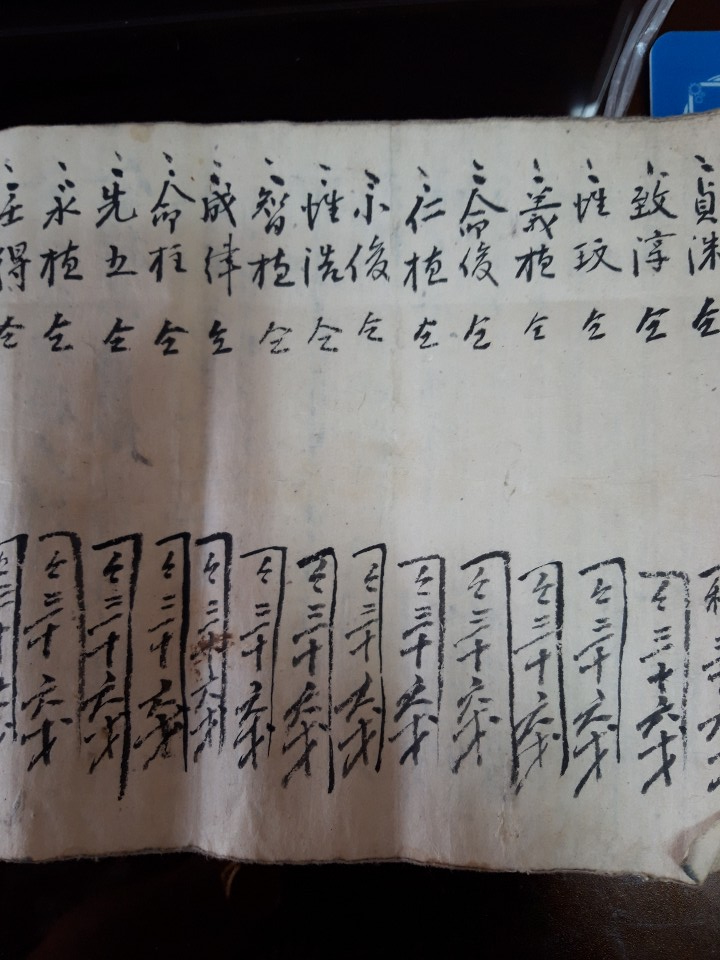 〻貞洙 仝 三十六
〻致淳 仝 仝三十六才
〻性玟 仝 仝三十六才
〻義植 仝 仝三十六才
〻命俊 仝 仝三十六才
〻仁植 仝 仝三十六才
〻俊 仝 仝三十六才
〻性浩 仝 仝三十六才
〻智植 仝 仝三十六才
〻成律 仝 仝三十六才
〻命柱 仝 仝三十六才
〻先五 仝 仝三十六才
〻永植 仝 仝三十六才
得 仝 三十六